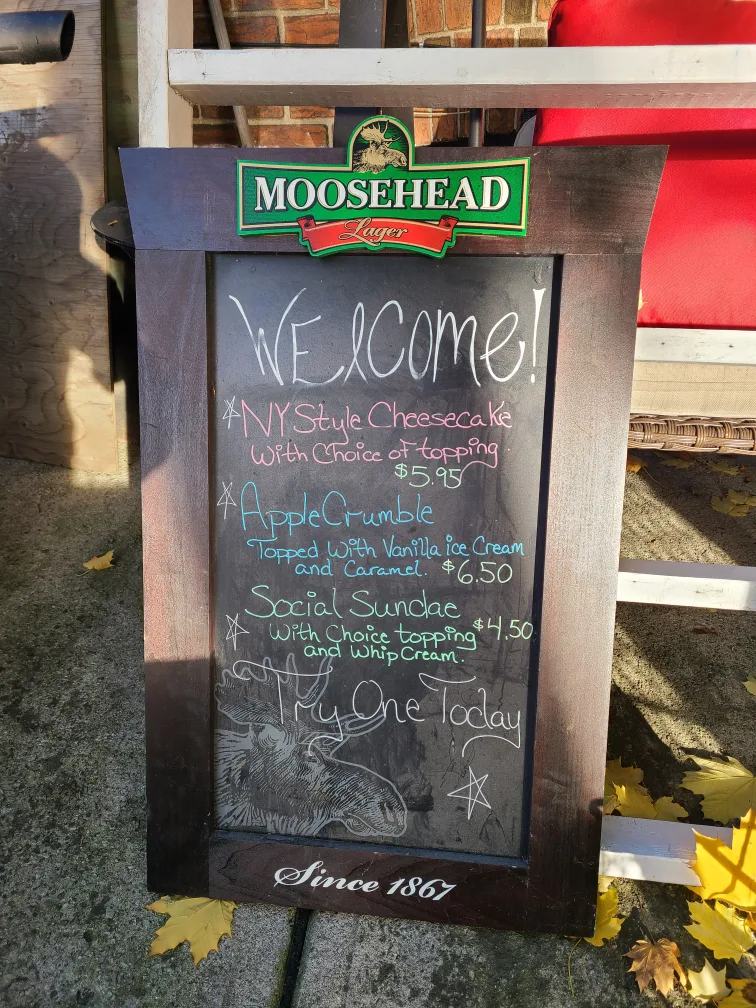 MOOSEHEAD
Lager
WElCOMe!
NY Style Cheesecake
With Choice of topping.
$5.95
Apple Crumble
Topped With Vanilla ice Cream
and Caramel. $6.50
Social Sundae
With Choice topping $4.50
and Whip Cream.
Try One Today
Since 1867